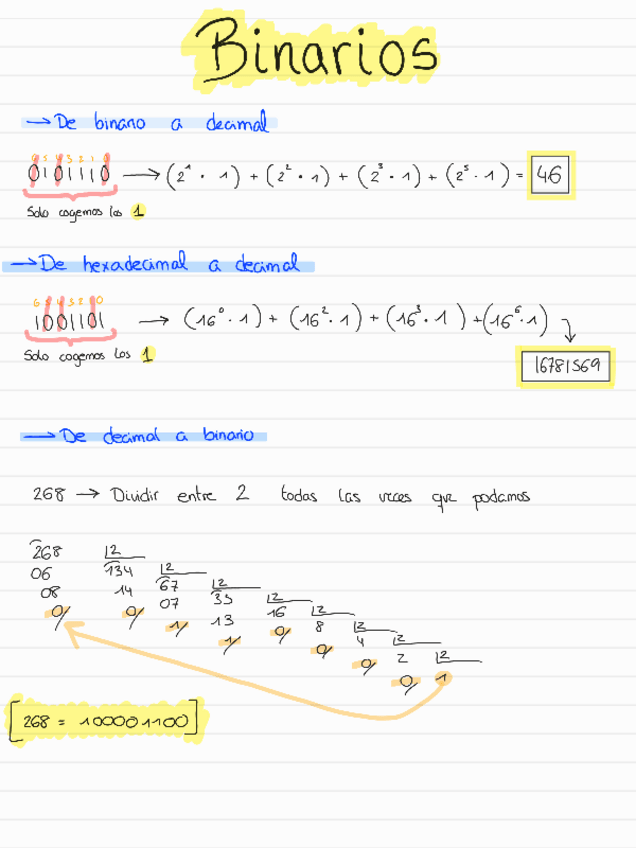 Binarios
→ De binario a decimal
6 5 4 3 2 1 0
0101110 → (2¹ · 1) + (2² · 1) + (2³ · 1) + (2⁵ · 1) = 46
Solo cogemos los 1
→ De hexadecimal a decimal
6 5 4 3 2 1 0
1001101 → (16⁰ · 1) + (16² · 1) + (16³ · 1) + (16⁶ · 1)
Solo cogemos los 1
16781569
→ De decimal a binario
268 → Dividir entre 2 todas las veces que podamos
268 |2
06 134 |2
08 14 67 |2
0 0 07 33 |2
1 13 16 |2
1 0 8 |2
0 4 |2
0 2 |2
0 1
[268 = 100001100]